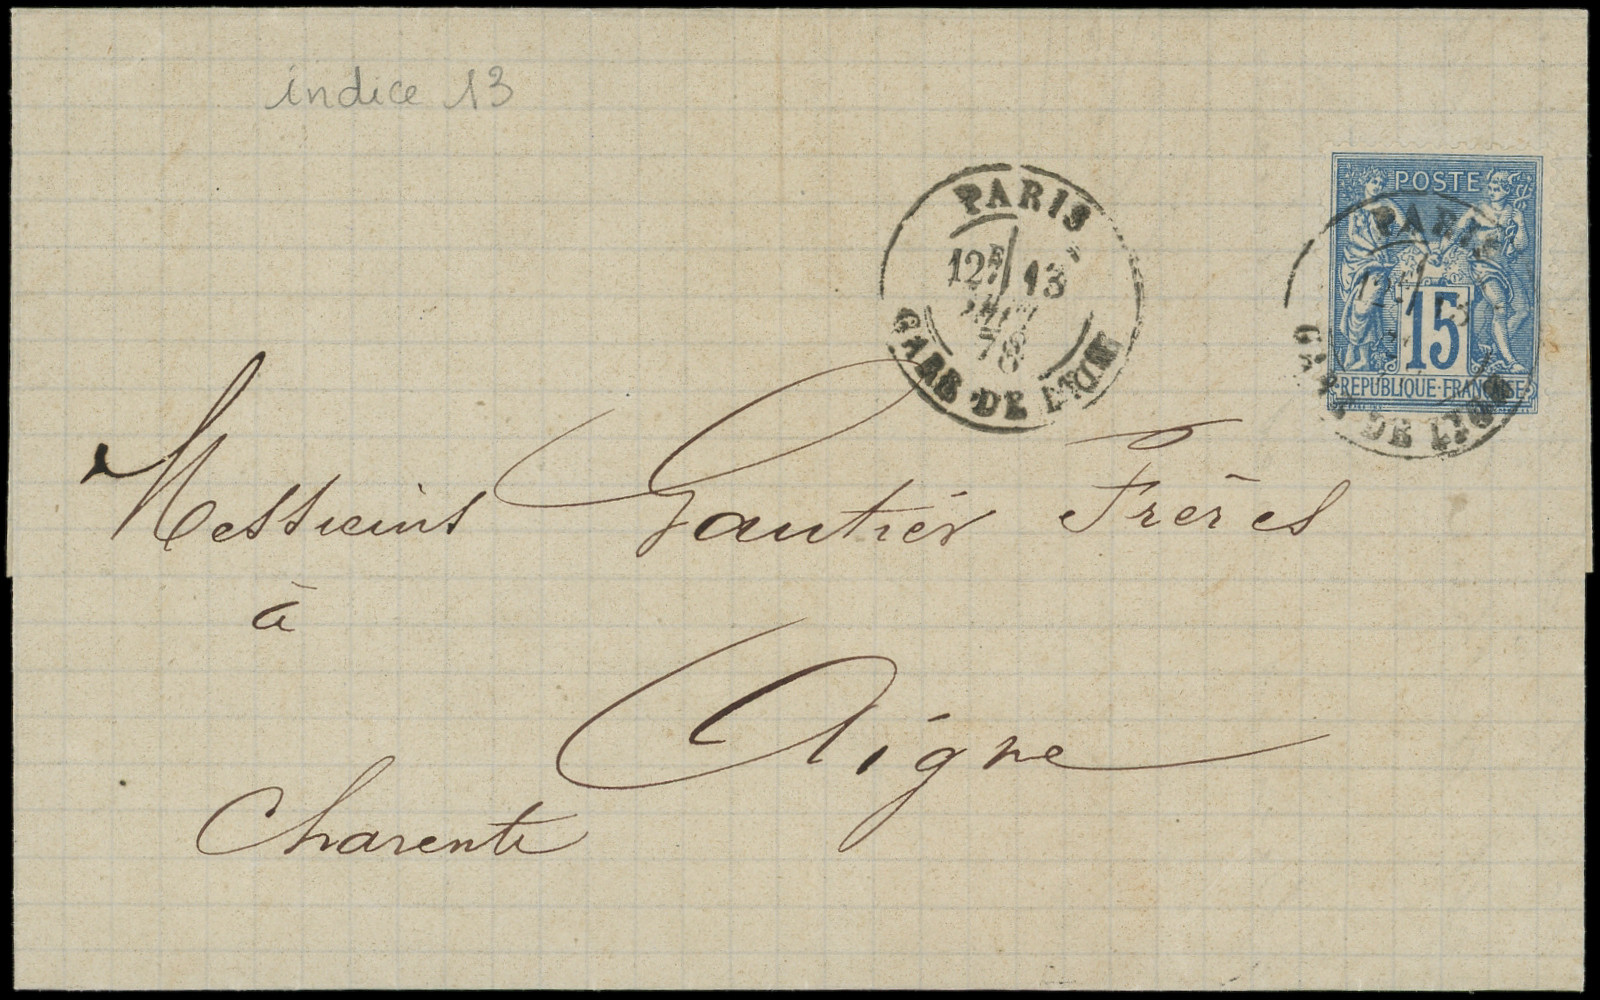 indice 13
PARIS
12E 13
78
GARE DE LYON
POSTE
15
REPUBLIQUE FRANCAISE
PARIS
GARE DE LYON
Messieurs Gautier Frères
à
Aigre
Charente